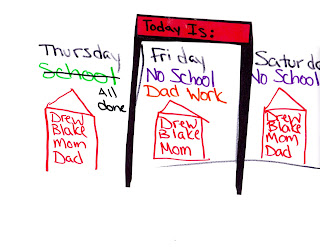 Today Is:
Thursday
School
All
done
Drew
Blake
Mom
Dad
Friday
No School
Dad Work
Drew
Blake
Mom
Saturda
No School
Drew
Blake
Mom
Dad